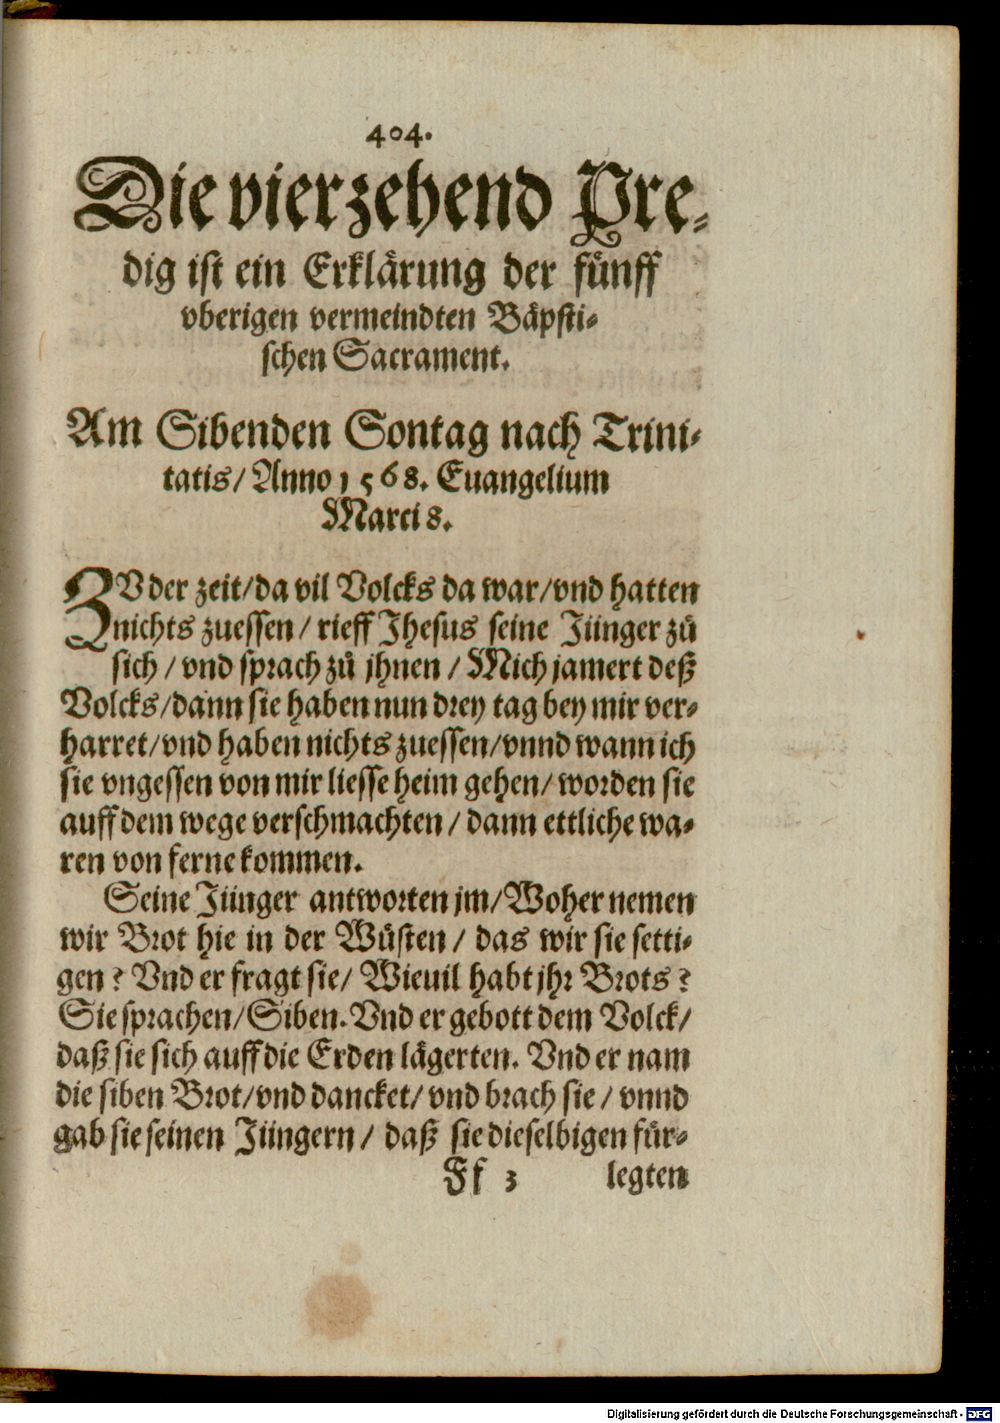 404.
Die vierzehend Pre-
dig ist ein Erklärung der fünff
vberigen vermeindten Bäpsti-
schen Sacrament.
Am Sibenden Sontag nach Trini-
tatis/ Anno 1568. Euangelium
Marci 8.
ZV der zeit/ da vil Volcks da war/ vnd hatten
nichts zuessen/ rieff Jhesus seine Jünger zů
sich/ vnd sprach zů jhnen/ Mich jamert deß
Volcks/ dann sie haben nun drey tag bey mir ver-
harret/ vnd haben nichts zuessen/ vnnd wann ich
sie vngessen von mir liesse heim gehen/ worden sie
auff dem wege verschmachten/ dann ettliche wa-
ren von ferne kommen.
Seine Jünger antworten jm/ Woher nemen
wir Brot hie in der Wüsten/ das wir sie setti-
gen? Vnd er fragt sie/ Wieuil habt jhr Brots?
Sie sprachen/ Siben. Vnd er gebott dem Volck/
daß sie sich auff die Erden lägerten. Vnd er nam
die siben Brot/ vnd dancket/ vnd brach sie/ vnnd
gab sie seinen Jüngern/ daß sie dieselbigen für-
Ff 3 legten
Digitalisierung gefördert durch die Deutsche Forschungsgemeinschaft - DFG